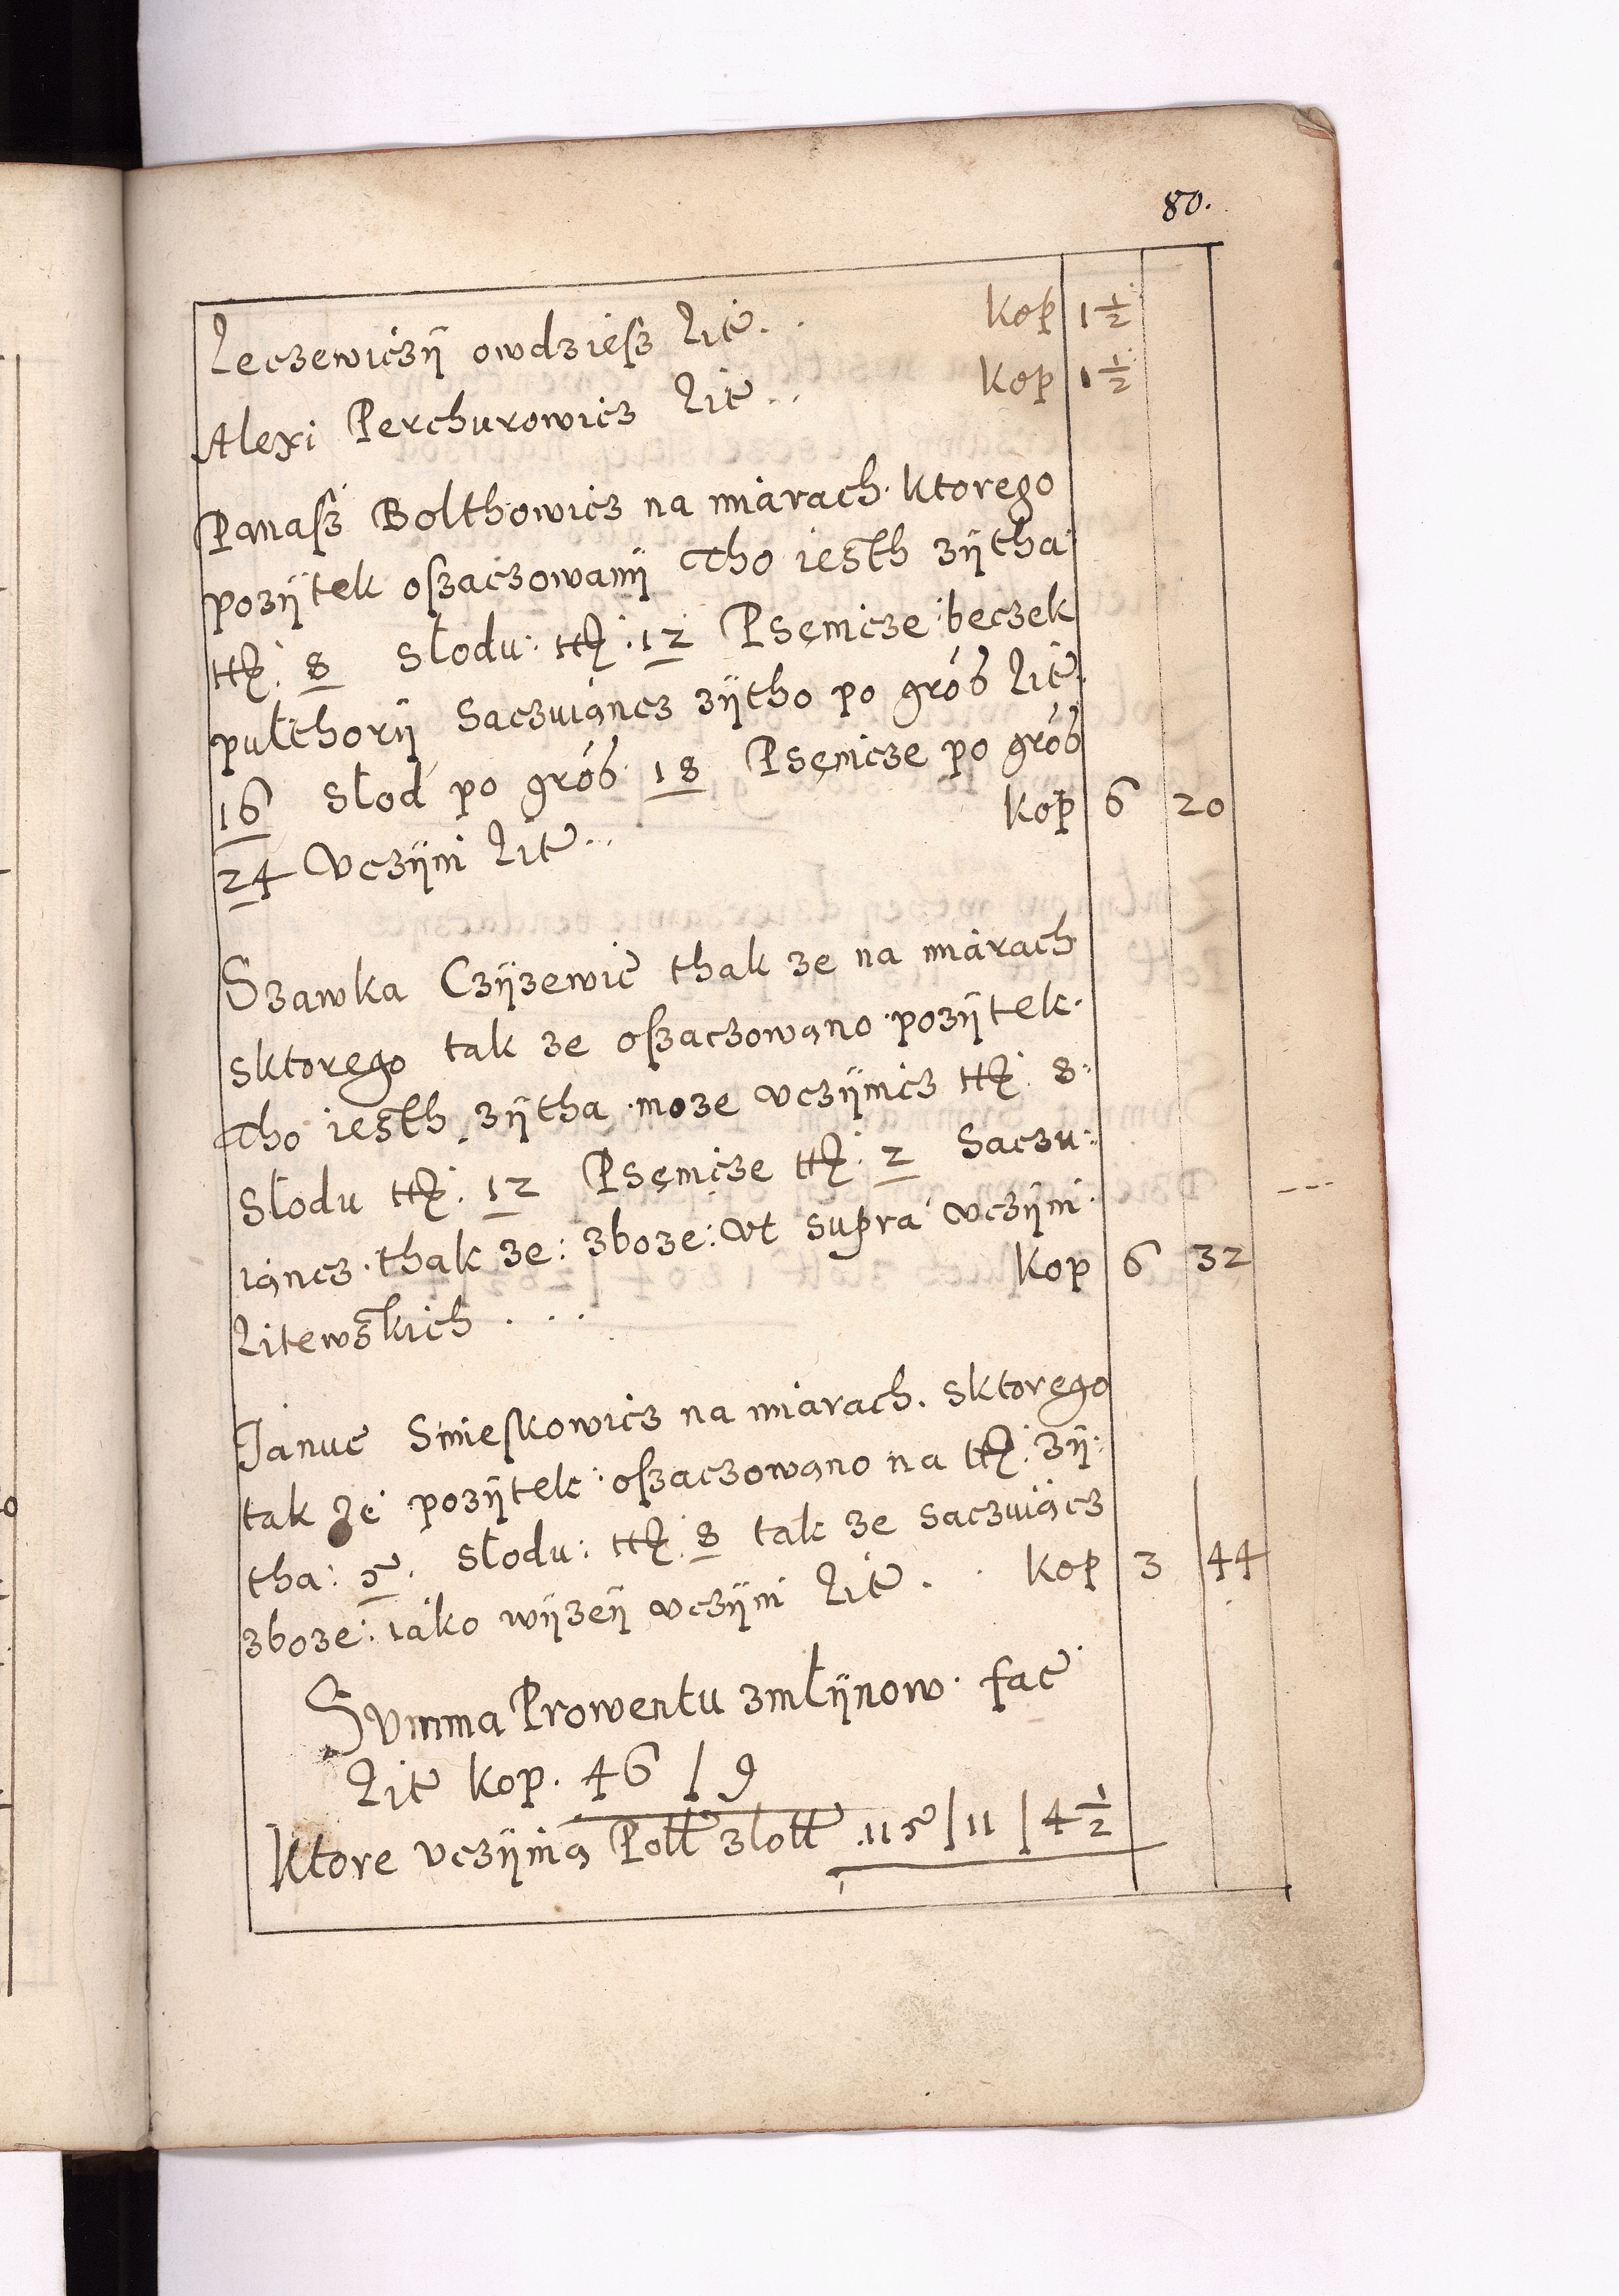 80.
Leczewiczÿ owdziesz Lit̃ . . kop 1½
Alexi Perchurowicz Lit̃ . . kop 1½
Panasz Bolthowicz na miarach ktorego
pozÿtek oszaczowanÿ Tho iesth zÿtha
8 Słodu: 12 Psęnicze beczek
pułthorÿ Saczuiąncz zÿtho po gro Lit̃
16 Słod po gro 18 Psęnicze po gro
24 Vczÿni Lit̃ . . kop 6 20
Szawka Czÿzewic̃ thak ze na miarach
sktorego tak ze oszaczowąno pozÿtek
Tho iesth zÿtha moze vczÿnicz 8
Słodu 12 Psęnicze 2 Saczu:
iąncz thak ze: zboze: Vt supra vczÿni
Litewskich . . . kop 6 32
Januc̃ Smieskowicz na miarach. sktorego
tak ze pozÿtek oszaczowąno na zÿ:
tha: 5. Słodu: 8 tak ze saczuiącz
zboze: iako wÿzeÿ vczÿni Lit̃ . . kop 3 44
Svmma Prowentu zmłÿnow fac̃
Lit̃ kop. 46 / 9
Ktore vczÿnią Poll złott 115 / 11 / 4½